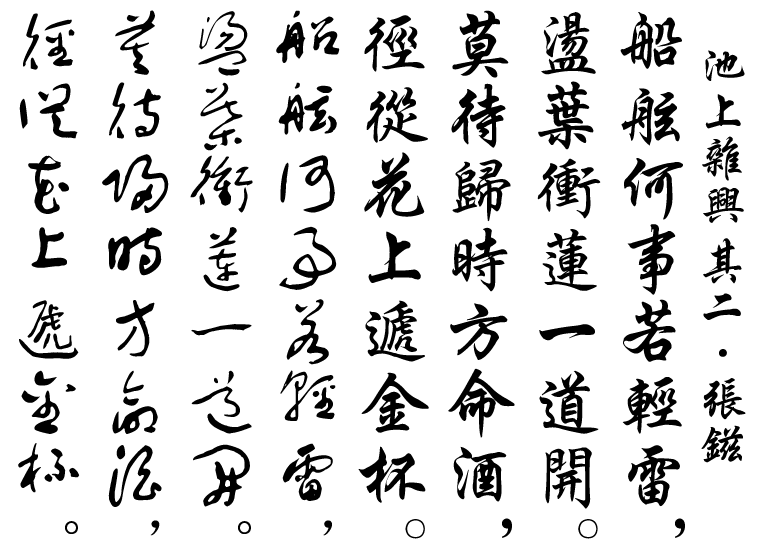 池上雜興其二·張鎡
船舷何事若輕雷，
盪葉衝蓮一道開。
莫待歸時方命酒，
徑從花上遞金杯。
船舷何事若輕雷，
盪葉衝蓮一道開。
莫待歸時方命酒，
徑從花上遞金杯。